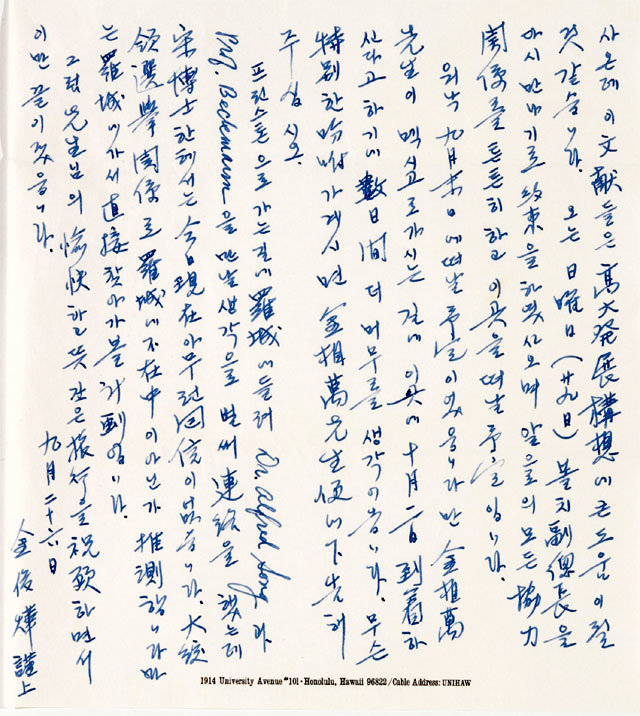 사온데 이 文献들은 高大発展構想에 큰 도움이 될
것 같습니다. 오는 日曜日(廿九日) 볼치 副總長을
다시 만나기로 約束을 하였사오며 앞으로의 모든 協力
関係를 튼튼히 하고 이곳을 떠날 予定입니다.
워낙 九月末日에 떠날 予定이었읍니다만 金相萬
先生이 멕시코로 가시는 길에 이곳에 十月二日 到着하
신다고 하기에 数日間 더 머무를 생각이옵니다. 무슨
特別한 吩咐가 계시면 金相萬 先生便에 下告해
주십시오.
프린스톤으로 가는 길에 羅城에 들려 Dr. Alfred Song 과
Prof. Beckmann 을 만날 생각으로 벌써 連絡을 했는데
宋博士한테서는 今日現在 아무런 回信이 없읍니다. 大統
領選挙 関係로 羅城에 不在中이 아닌가 推測합니다마
는 羅城에 가서 直接 찾아가 볼 計劃입니다.
그럼 先生님의 愉快하고 뜻 깊은 旅行을 祝願하면서
이만 끝이겠읍니다.
九月二十六日
金俊燁 謹上
1914 University Avenue #101 · Honolulu, Hawaii 96822 / Cable Address: UNIHAW